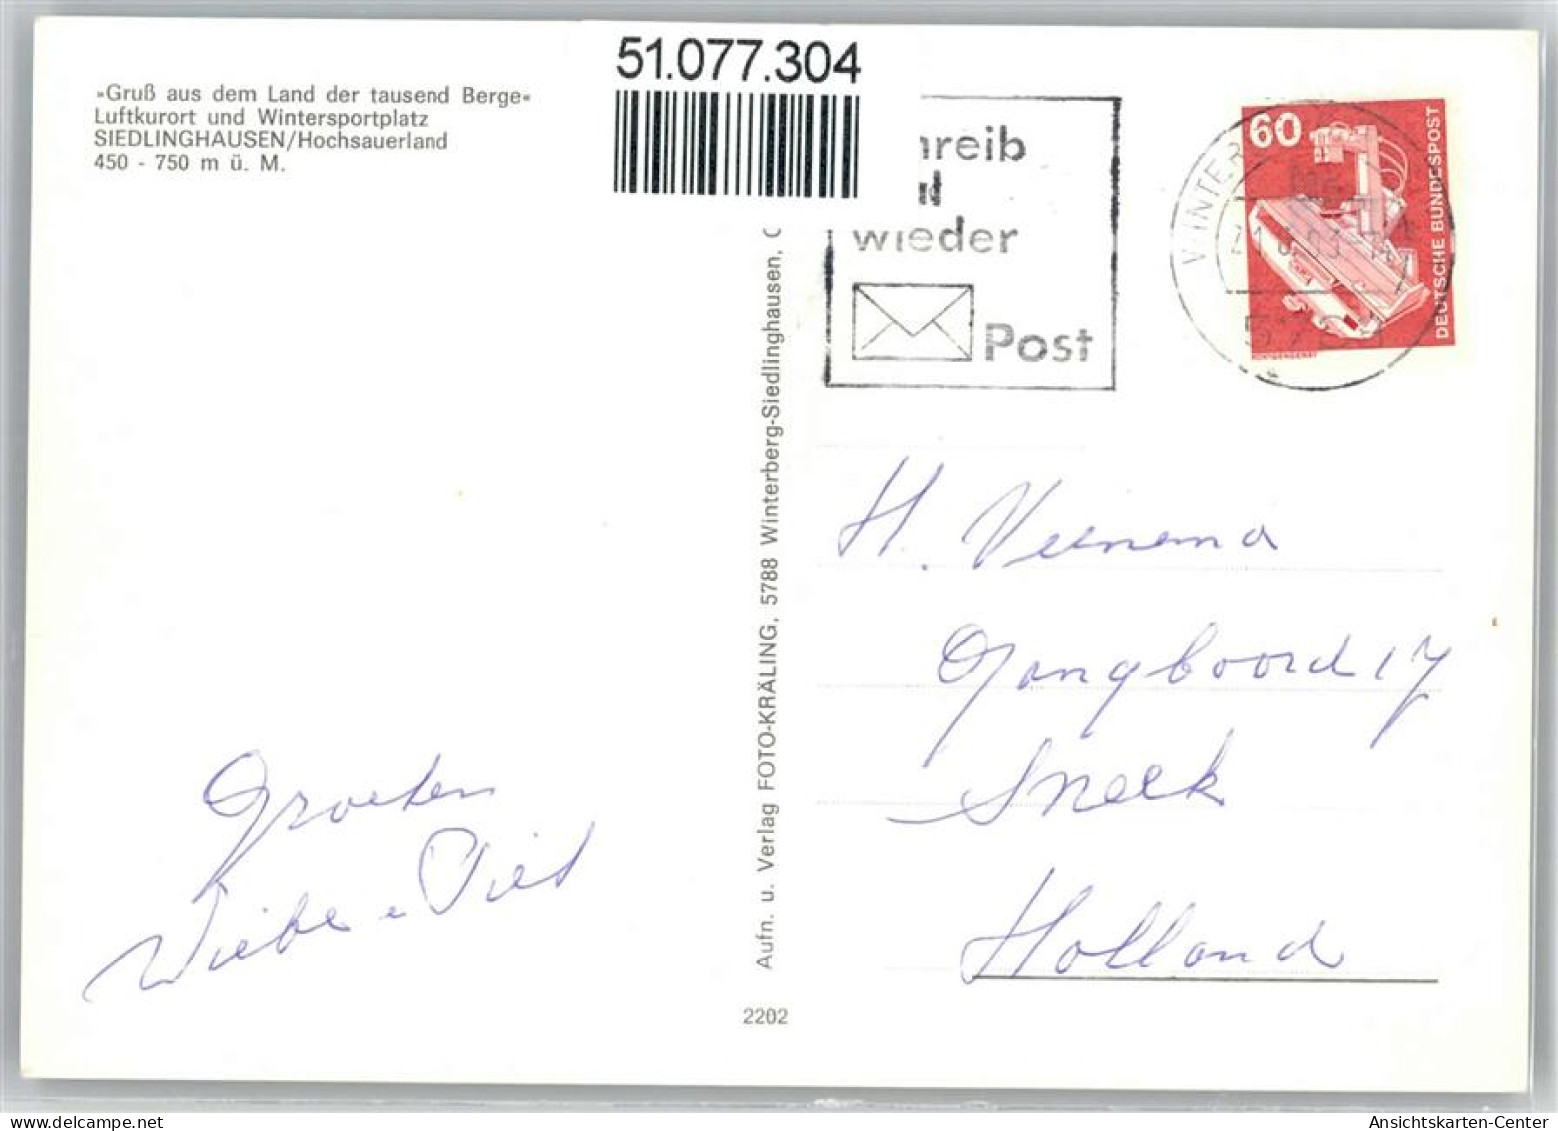 51.077.304
»Gruß aus dem Land der tausend Berge«
Luftkurort und Wintersportplatz
SIEDLINGHAUSEN/Hochsauerland
450 - 750 m ü. M.
hreib
wieder
Post
60
DEUTSCHE BUNDESPOST
RÖNTGENGERÄT
WINTER
Aufn. u. Verlag FOTO-KRÄLING, 5788 Winterberg-Siedlinghausen,
H. Veenema
Gangboord 17
Sneek
Holland
Groeten
Wiebe e Piet
2202
Ansichtskarten-Center